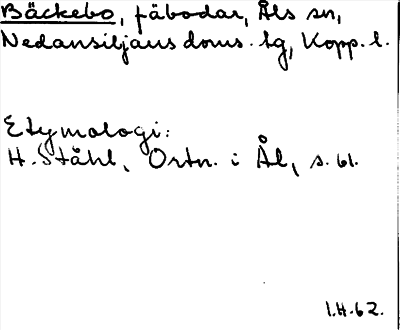 Bäckebo, fäbodar, Åls sn,
Nedansiljans doms. tg, Kopp. l.
Etymologi:
H. Ståhl, Ortn. i Ål, s. 61.
I.H. 62.